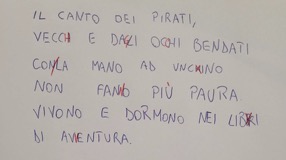 IL CANTO DEI PIRATI,
VECCHI E DAGLI OCCHI BENDATI
CON LA MANO AD UNCHINO
NON FANNO PIÙ PAURA.
VIVONO E DORMONO NEI LIBRI
DI AVENTURA.